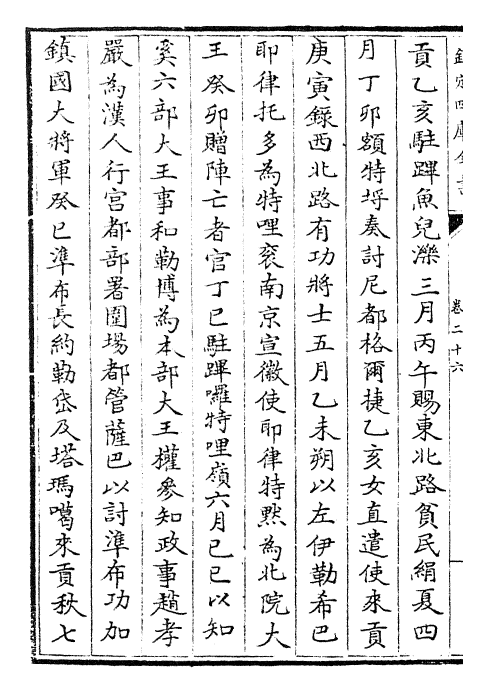 欽定四庫全書
卷二十六
貢乙亥駐蹕魚兒濼三月丙午賜東北路貧民絹夏四
月丁卯額特埒奏討尼都格爾捷乙亥女直遣使來貢
庚寅錄西北路有功將士五月乙未朔以左伊勒希巴
耶律托多為特哩衮南京宣徽使耶律特默為北院大
王癸卯贈陣亡者官丁巳駐蹕囉特哩嶺六月己巳以知
奚六部大王事和勒博為本部大王權參知政事趙孝
嚴為漢人行宫都部署圍場都管薩巴以討準布功加
鎮國大將軍癸巳準布長約勒岱及塔瑪噶來貢秋七